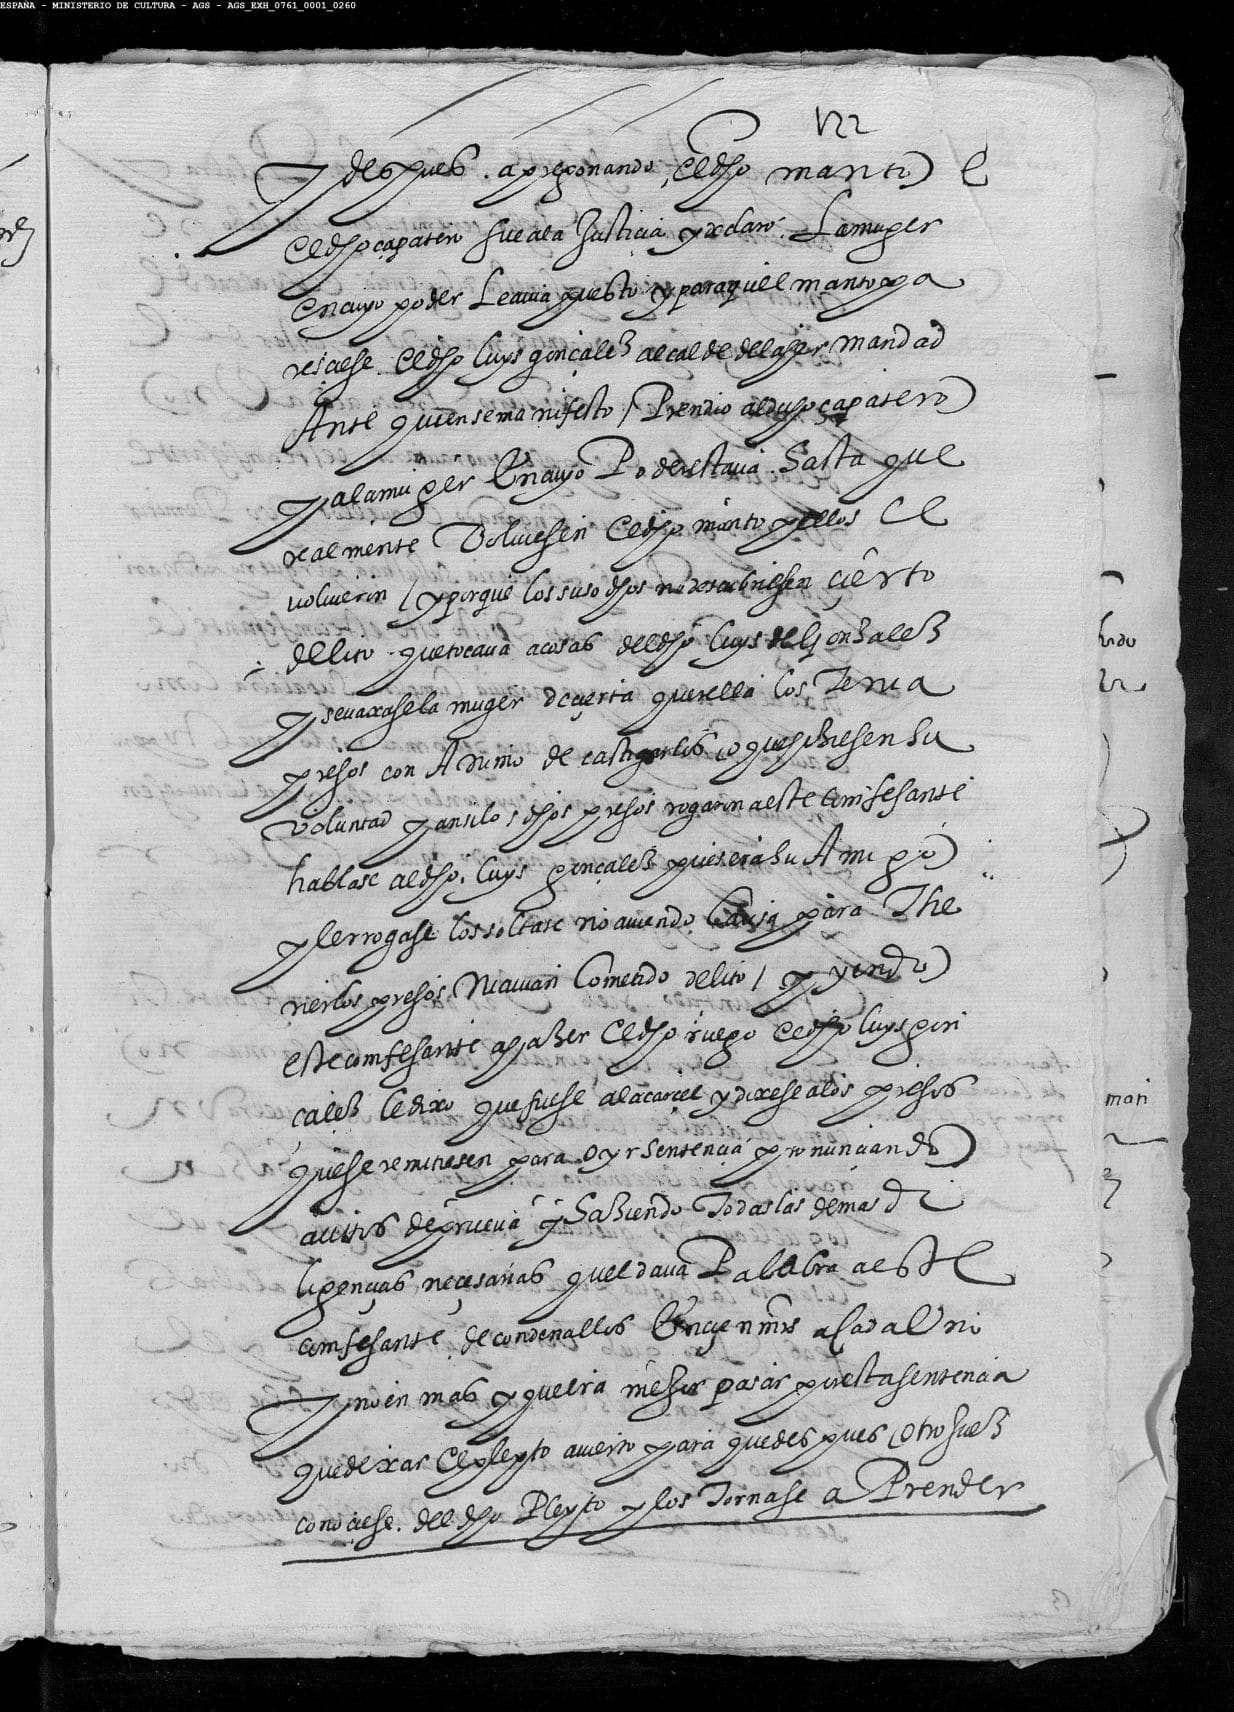 ESPAÑA - MINISTERIO DE CULTURA - AGS - AGS_EXH_0761_0001_0260
Y despues apregonando el dho manto el
el dho çapatero fue a la Justicia y declaro la muger
en cuyo poder le avia puesto y para que el manto pa
resciese el dho luys gonçalez alcalde de la hermandad
Ante quien se manifesto / Prendio al dicho çapatero
y a la muger En cuyo Poder estava hasta que
realmente volviesen el dho manto y ellos le
volvieron / y porque los suso dhos no descubriesen çierto
delito que tocava a cosas del dho luys de gonzalez
y se vaxase la muger de cierta querella los Tenia
presos con Animo de castigarlos o que hiziesen su
voluntad y ansi los dhos presos rogaron a este comfesante
hablase al dho luys gonçalez pues era su Amigo
y le rrogase los soltase no aviendo Causa para The
nerlos presos Ni avian Cometido delito / y yendo
este comfesante a hazer el dho ruego el dho luys gon
çalez le dixo que fuese a la carçel y dixese a los presos
que se remitiesen para oyr sentencia pronunciando
avitos de prueva y haziendo Todas las demas di
ligençias neçesarias que el dava Palabra a este
comfesante de condenallos En çien mrs a Cada Uno
Y no en mas y que era mejor pasar por esta sentencia
que dexar el pleyto avierto para que despues otro Juez
conociese del dho Pleyto y los Tornase a Prender